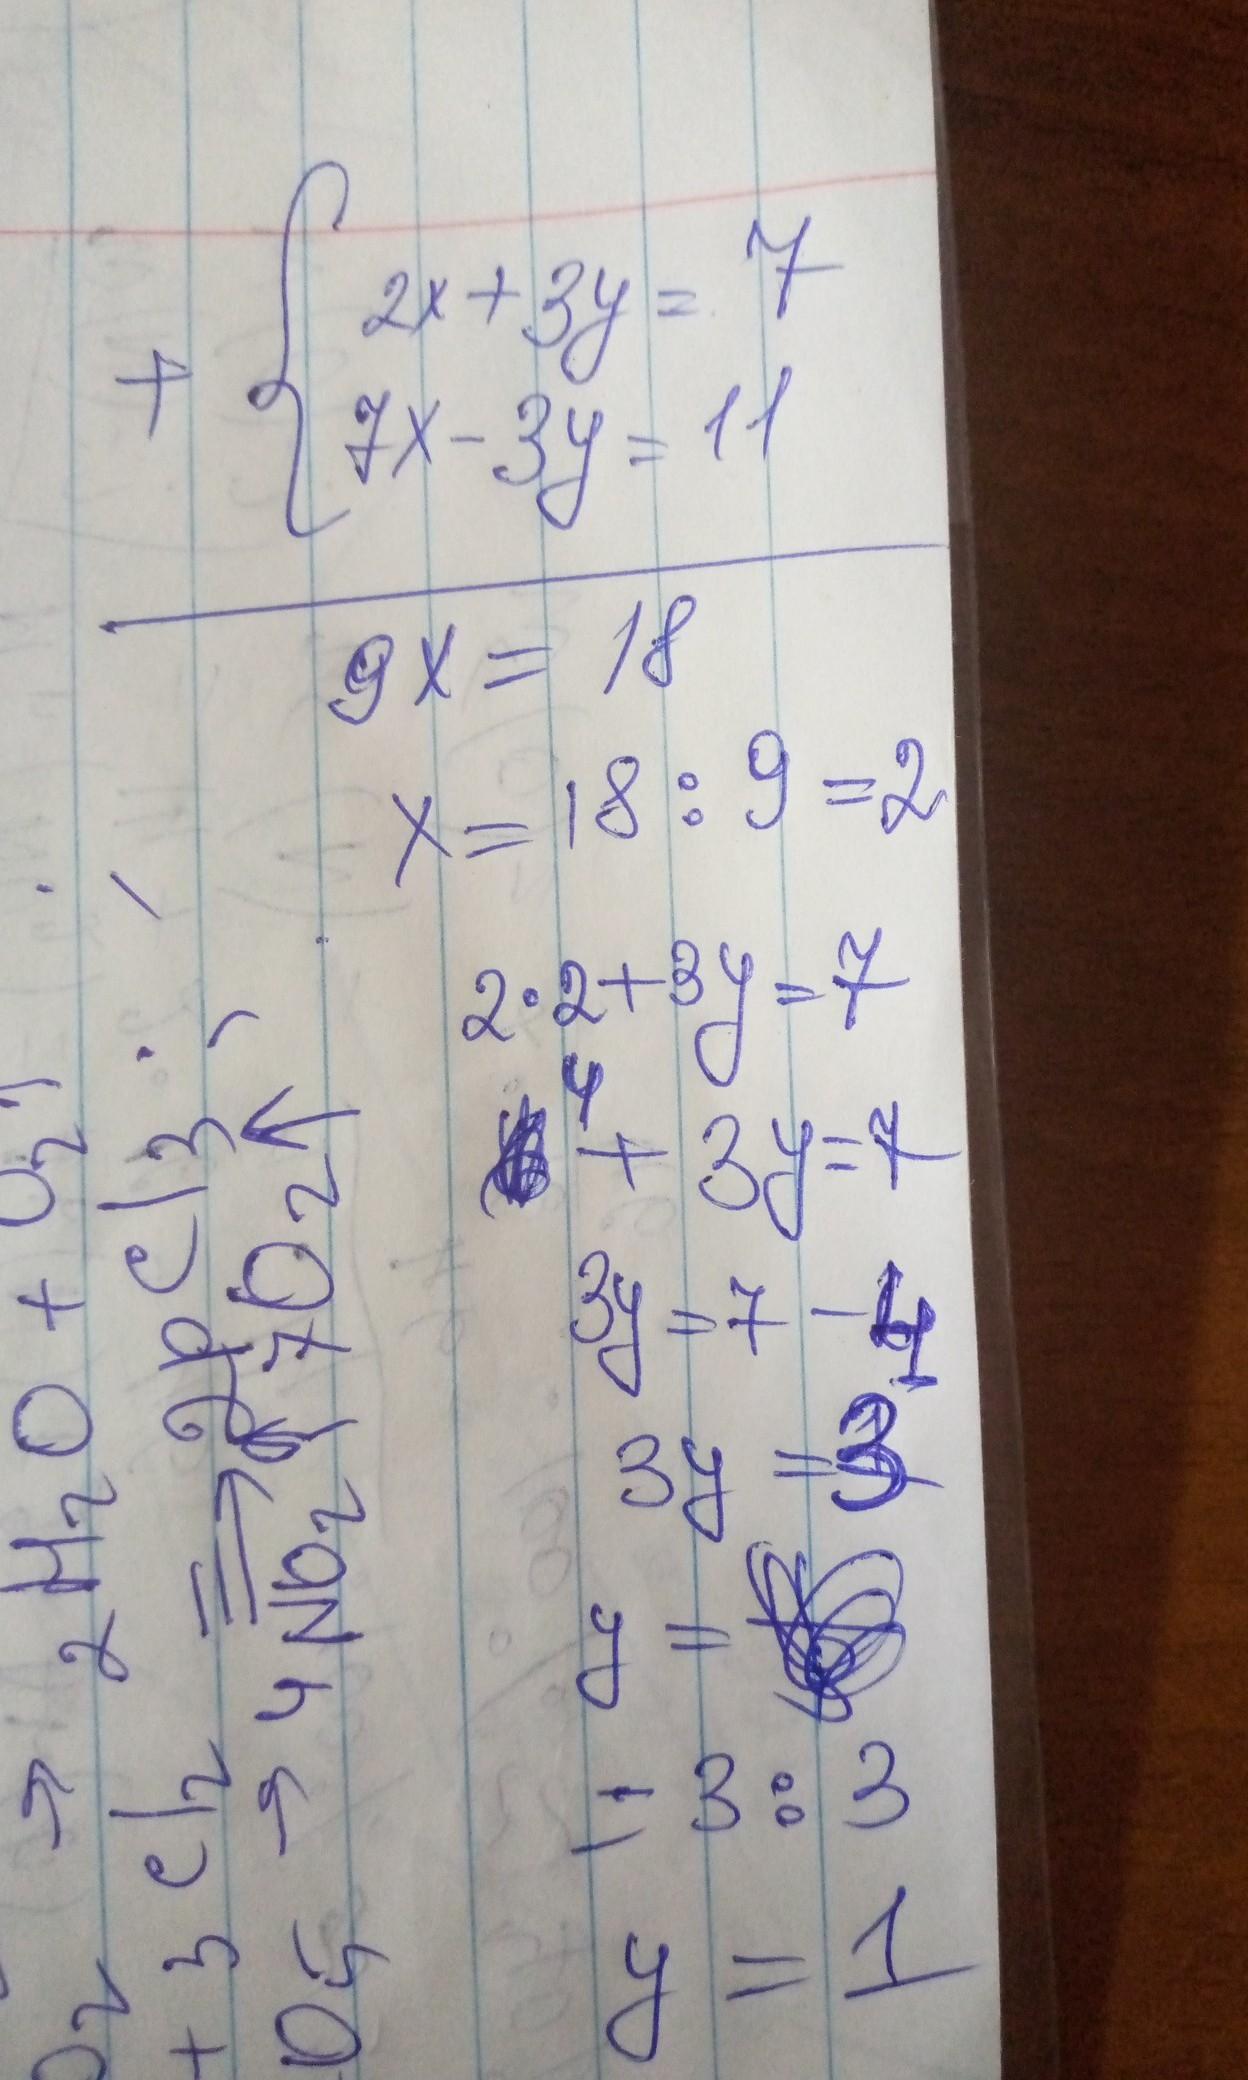 2x + 3y = 7
+
7x - 3y = 11
9x = 18
x = 18 : 9 = 2
2 · 2 + 3y = 7
4 + 3y = 7
3y = 7 - 4
3y = 3
y =
3 : 3
y = 1
→ 2H₂O + O₂
+ 3Cl₂ ⇒ 2PCl₃
→ 4NO₂ + O₂